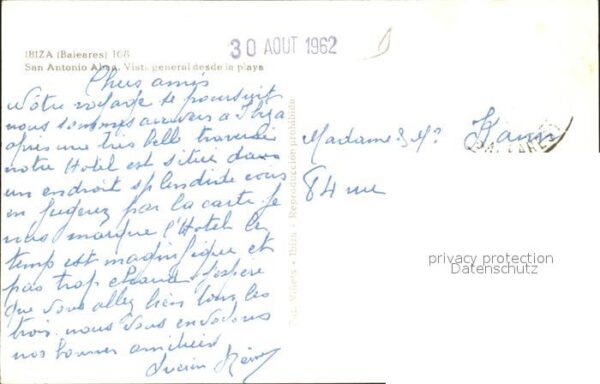 IBIZA (Baleares) 168
30 AOUT 1962
San Antonio Abad. Vista general desde la playa
Chers amis
Notre voyage se poursuit
nous sommes arrivés à Ibiza
après une très belle traversée
notre Hotel est situé dans
un endroit splendide vous
en jugerez par la carte je
vous marque l'Hotel le
temps est magnifique et
pas trop chaud j'espère
que vous allez bien tous les
trois. nous vous envoyons
nos bonnes amitiés
Lucien
Madame & Mr
84 rue
Viñets - Ibiza - Reproduccion prohibida
privacy protection
Datenschutz